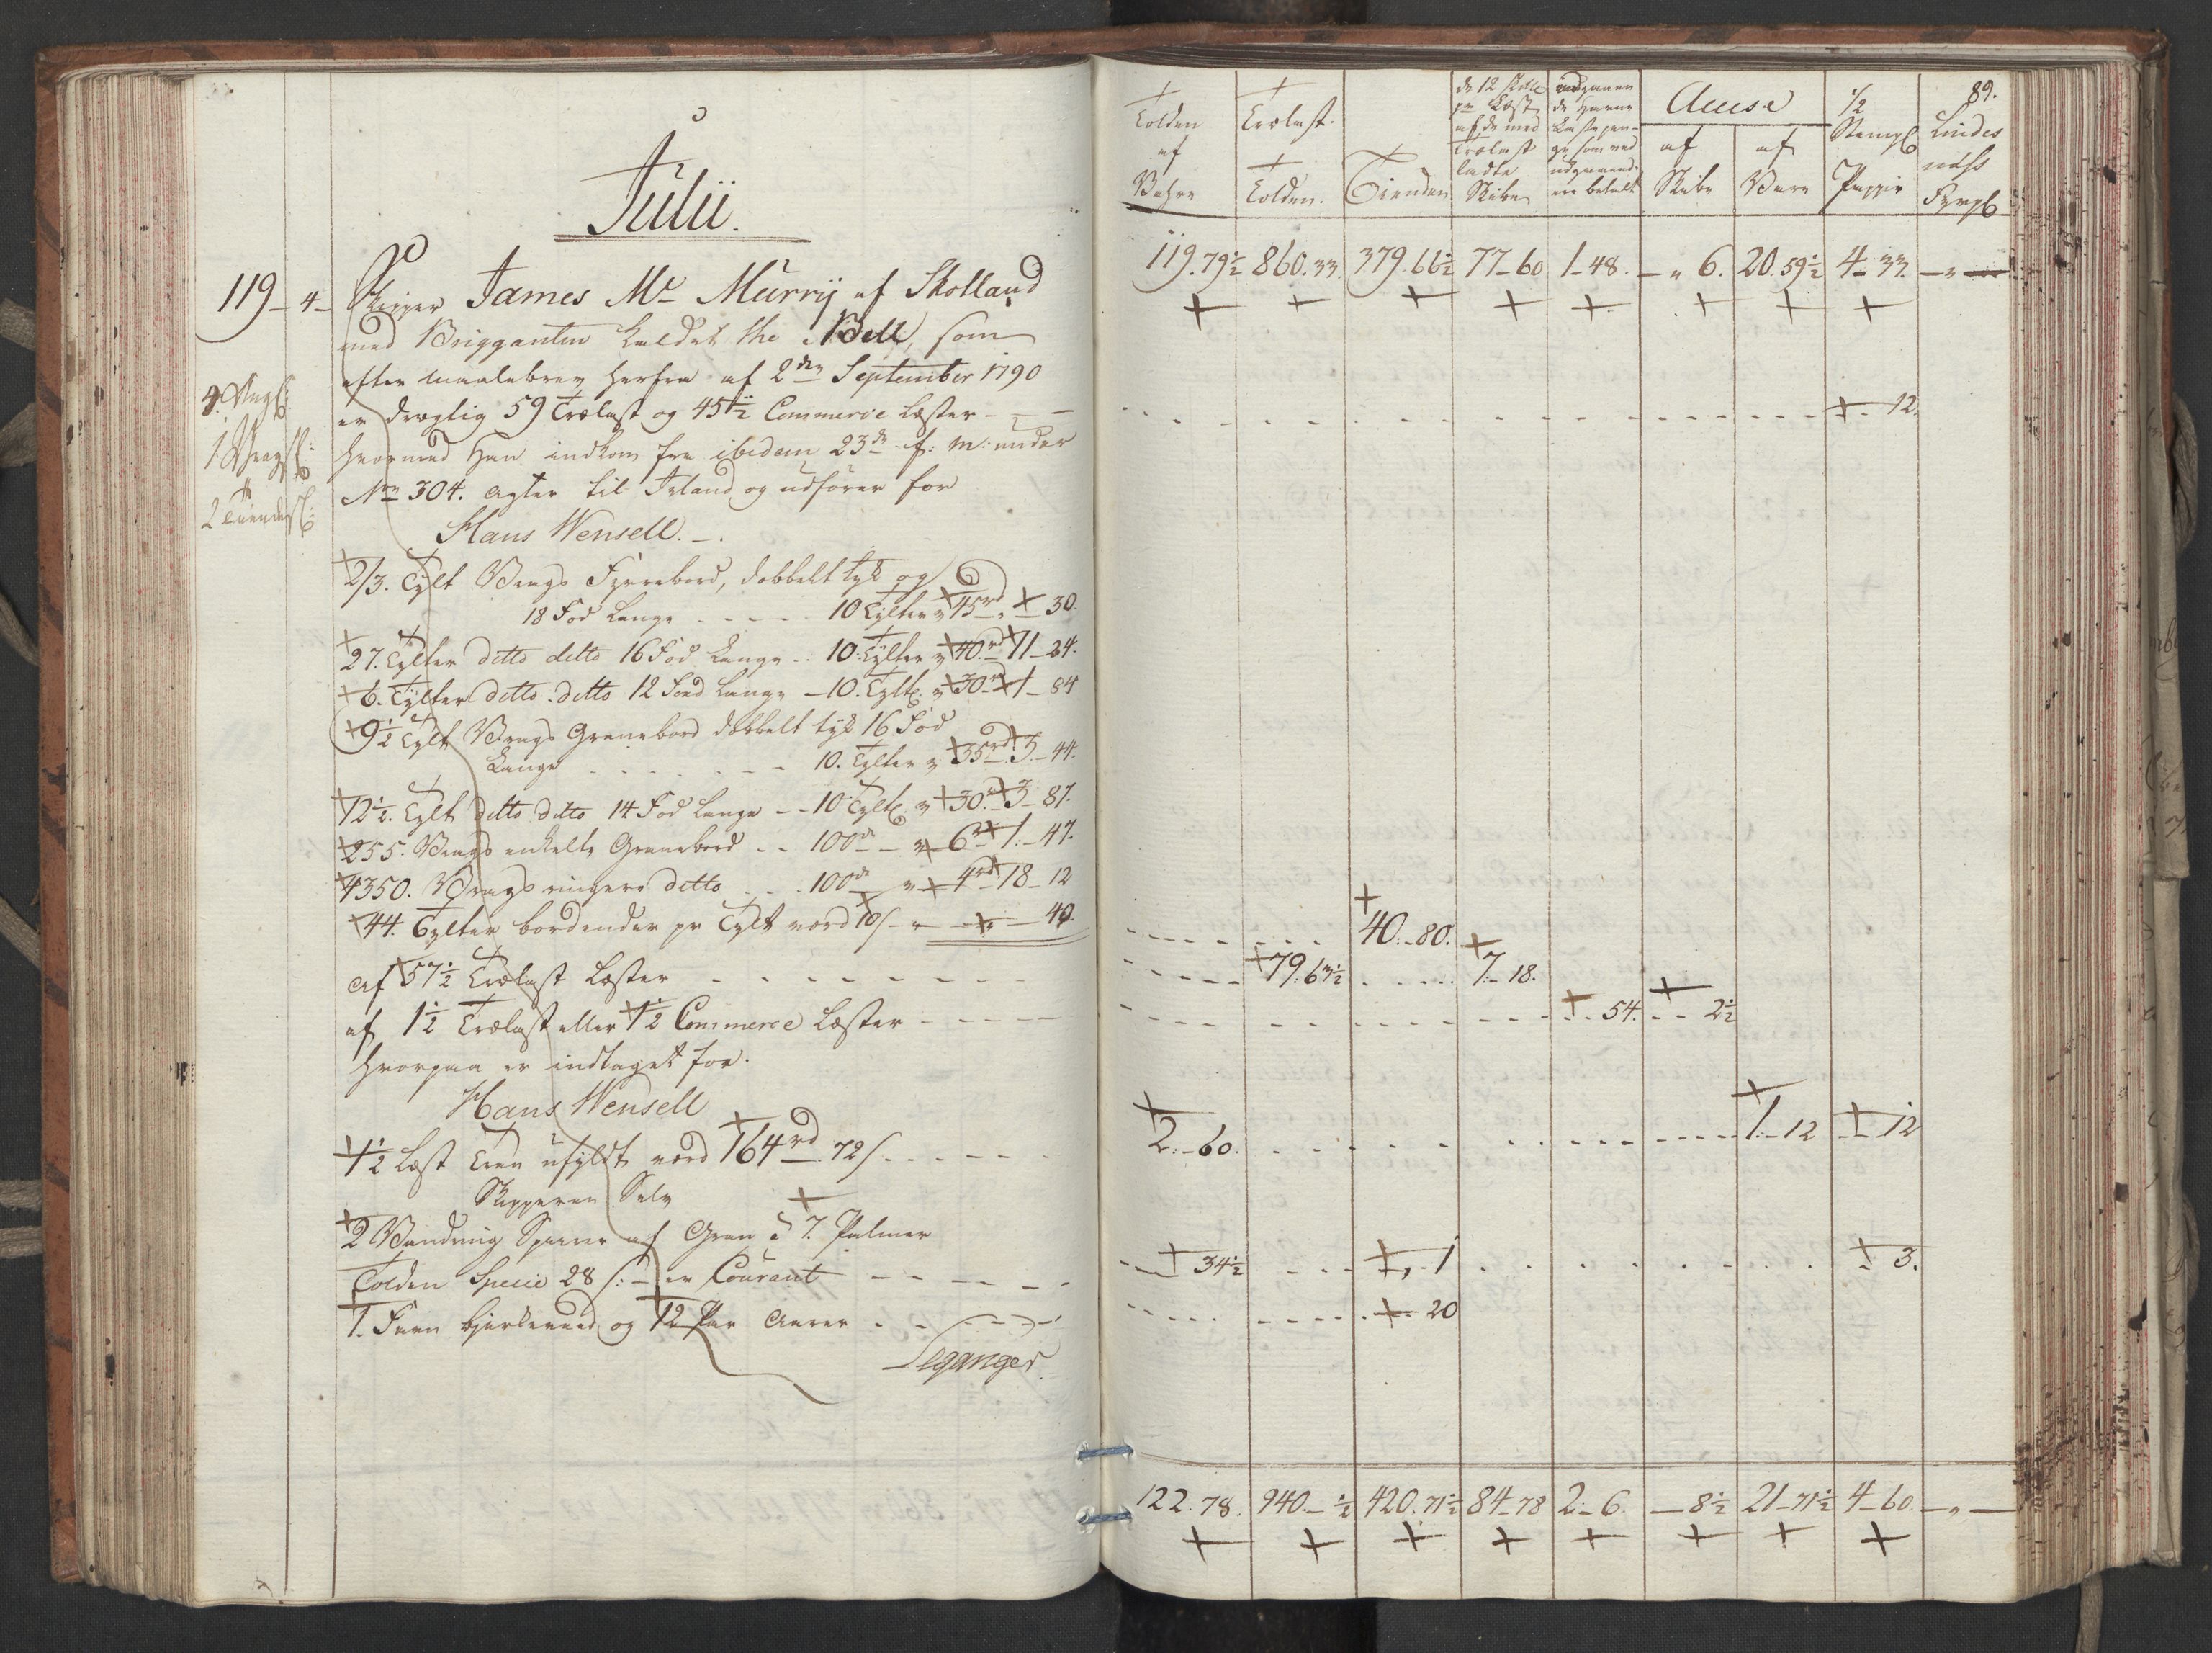 Julii.
119 - 4 - Skipper James Mc Murrÿ af Skotland
med Briggantin kaldet the Bell, som
efter maalebrev herfra af 2den September 1790
er drægtig 59 Trælast og 45½ Commerce Læster - - -
hvormed Han indkom fra ibidem 23de f: m: under
No 304. agter til Irland og udfører for
Hans Wensell. -.
2/3. Tylt Vrags Fyrrebord, dobbelt tyk og
18 Fod Lange - - - - - 10 Tylter a 45rd - 30.
27. Tylter ditto ditto 16 Fod Lange - - 10 Tylter a 40rd 11 - 24.
6. Tylter ditto ditto 12 Fod Lange - 10. Tylt. a 30rd 1 - 84
9½ Tylt Vrags Granebord dobbelt tyk 16 Fod
Lange - - - - - 10. Tylter a 35rd 3 - 44.
12½. Tylt ditto ditto 14 Fod Lange - - 10 Tylt. a 30rd 3 - 87.
255. Vrags enkelte Granebord - - 100de - a 6rd 1 - 47.
4350. Vrags ringere ditto - - 100de - a 4rd 18 - 12
44. Tylter bordender pr Tylt værd 10 s - - - 40.
af 57½ Trælast Læster - - - - - -
af 1½ Trælast eller 1½ Commerce Læster - - - - -
hvorpaa er indtaget for.
Hans Wensell
1½ Læst Tran ufyldt værd 164rd 72 s - - - - -
Skipperen Selv
2 Vandring Sparrer af Gran a 7. Palmer
Tolden Specie 28 s: - er Courant - - - - - -
1. Favn Birkeveed og 12 Par Aarer - - - - -
Leganger
89.
Tolden
af
Vahre
Trælast.
Tolden.
Tienden
de 12 
pr Læst
af de med
Trælast
ladte
Skibe
de Havne
ge som ved
er betalt
Accise
af
Skibe
af
Vare
½
Stempl
Pappir
Lindes
nes
Fyrp
119.79½ 860.33. 379.66½ 77-60 1-48. - " 6. 20.59½ 4-33. - " -
- 12.
40.-80.
79.63½ 7.-18.
54. 2½
2.-60. 1.-12 - 12
- 34½ - 1 - 3.
- 20
122.78. 940.-½ 420.71½ 84-78 2-6. - 8½ 21-71½ 4-60 - " -